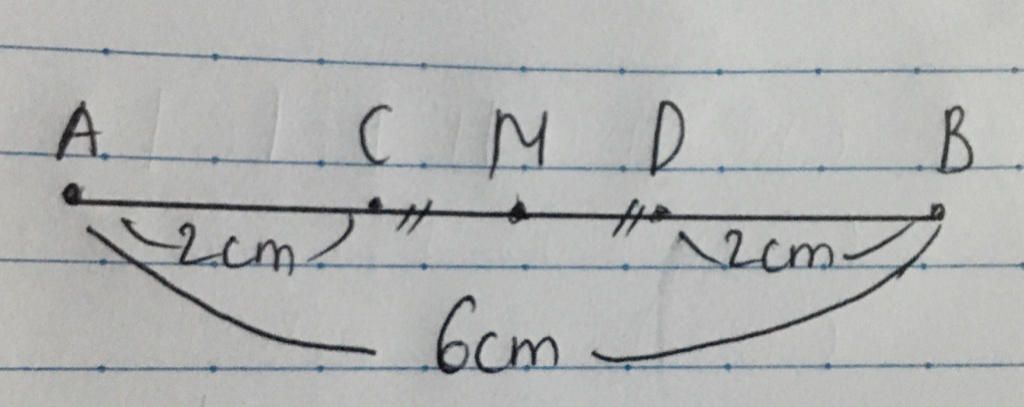 A C M D B
2cm 2cm
6cm